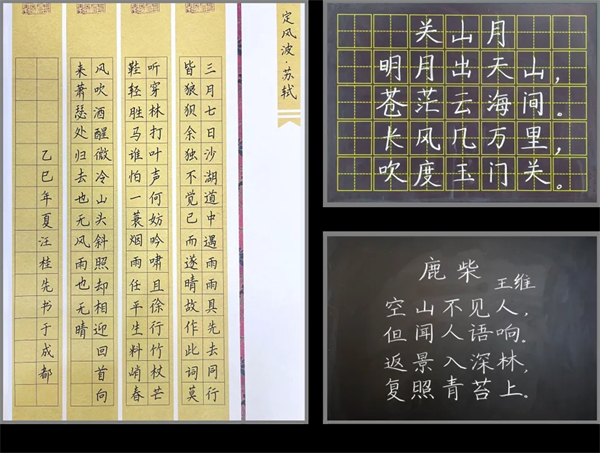 定风波·苏轼
三月七日沙湖道中遇雨雨具先去同行
皆狼狈余独不觉已而遂晴故作此词莫
听穿林打叶声何妨吟啸且徐行竹杖芒
鞋轻胜马谁怕一蓑烟雨任平生料峭春
风吹酒醒微冷山头斜照却相迎回首向
来萧瑟处归去也无风雨也无晴
乙巳年夏汪桂先书于成都
关山月
明月出天山,
苍茫云海间。
长风几万里,
吹度玉门关。
鹿柴
王维
空山不见人,
但闻人语响.
返景入深林,
复照青苔上.